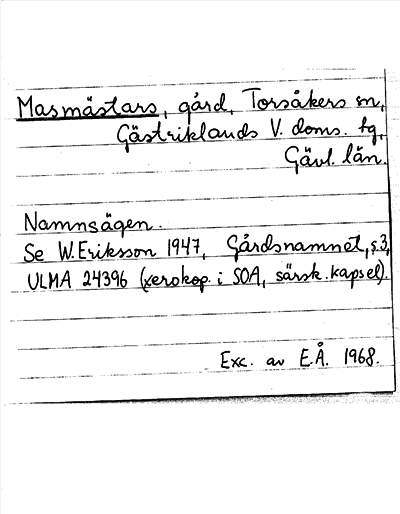 Masmästars, gård, Torsåkers sn,
Gästriklands V. doms. tg,
Gävl. län.
Namnsägen.
Se W. Eriksson 1947, Gårdsnamnet, s. 3,
ULMA 24396 (xerokop. i SOA, särsk. kapsel).
Exc. av E.Å. 1968.